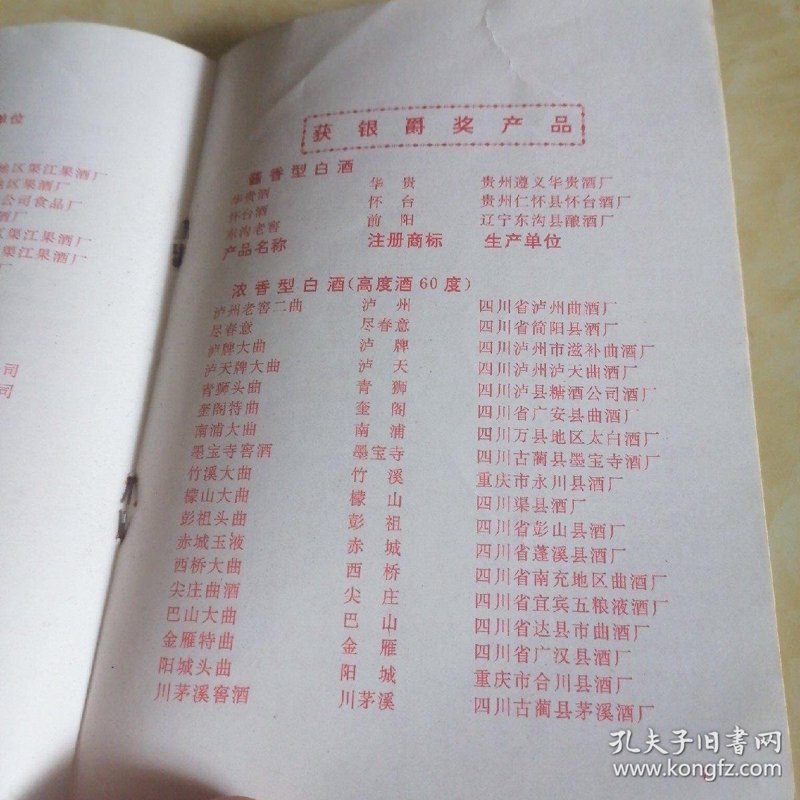 单位
地区渠江果酒厂
地区果酒厂
公司食品厂
酒厂
区渠江果酒厂
渠江果酒厂
厂
司
司
获银爵奖产品
酱香型白酒
华贵酒 华贵 贵州遵义华贵酒厂
怀台酒 怀台 贵州仁怀县怀台酒厂
东沟老窖 前阳 辽宁东沟县酿酒厂
产品名称 注册商标 生产单位
浓香型白酒(高度酒60度)
泸州老窖二曲 泸州 四川省泸州曲酒厂
尽春意 尽春意 四川省简阳县酒厂
泸牌大曲 泸牌 四川泸州市滋补曲酒厂
泸天牌大曲 泸天 四川泸州泸天曲酒厂
青狮头曲 青狮 四川泸县糖酒公司酒厂
奎阁特曲 奎阁 四川省广安县曲酒厂
南浦大曲 南浦 四川万县地区太白酒厂
墨宝寺窖酒 墨宝寺 四川古蔺县墨宝寺酒厂
竹溪大曲 竹溪 重庆市永川县酒厂
檬山大曲 檬山 四川渠县酒厂
彭祖头曲 彭祖 四川省彭山县酒厂
赤城玉液 赤城 四川省蓬溪县酒厂
西桥大曲 西桥 四川省南充地区曲酒厂
尖庄曲酒 尖庄 四川省宜宾五粮液酒厂
巴山大曲 巴山 四川省达县市曲酒厂
金雁特曲 金雁 四川省广汉县酒厂
阳城头曲 阳城 重庆市合川县酒厂
川茅溪窖酒 川茅溪 四川古蔺县茅溪酒厂
孔夫子旧书网
www.kongfz.com